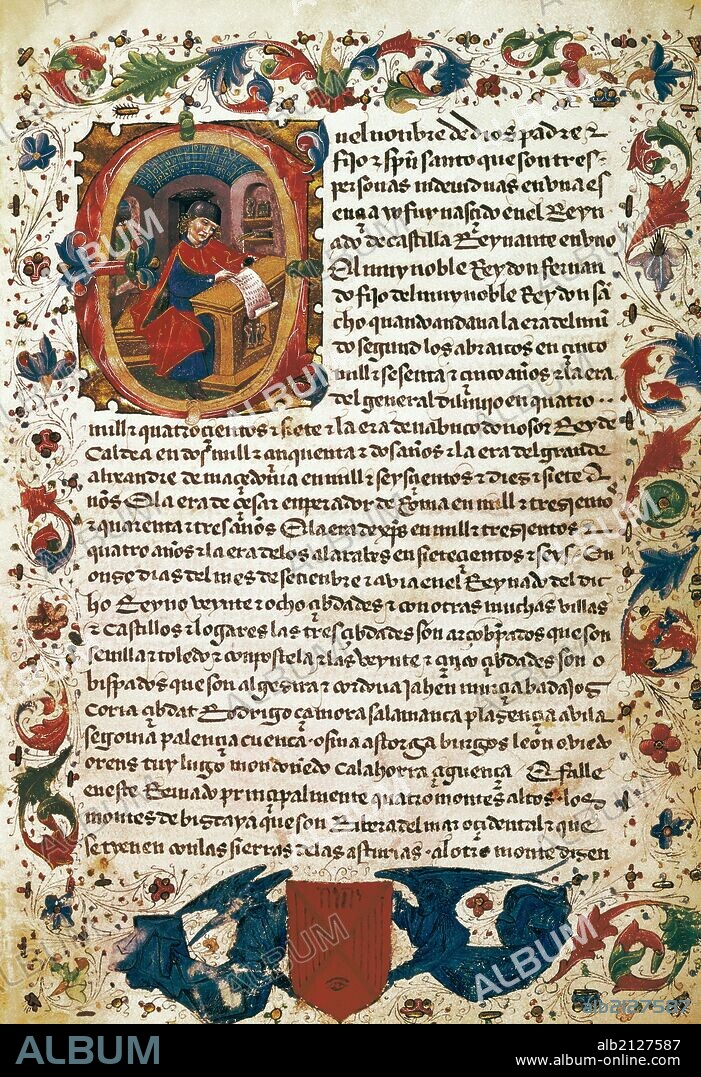 1
nel nonbre de dios padre ⁊
fijo ⁊ spũ santo que son tres
personas indeuiduas en vna es
ençia yo fuy nasçido en el Reyn
ado de castilla Reynante en vno
El muy noble Rey don fernan
do fijo del muy noble Rey don sã
cho quando andaua la era del mũ
do segund los abraicos en çinco
mill ⁊ sesenta ⁊ çinco años ⁊ la era
del general diluuio en quatro
mill ⁊ quatroçientos ⁊ siete ⁊ la era de nabucodonosor Rey de
Caldea en dos mill ⁊ çinquenta ⁊ dos años ⁊ la era del grande
alixandre de maçedonia en mill ⁊ seysçientos ⁊ diez ⁊ siete
años E la era de çesar enperador de Roma en mill ⁊ trezientos
⁊ quarenta ⁊ tres años E la era de xp̃s en mill ⁊ trezientos ⁊
quatro años ⁊ la era de los alarabes en sieteçientos ⁊ seys En
onze dias del mes de setienbre ⁊ auia en el Reynado del dic
ho Reyno veynte ⁊ ocho çibdades ⁊ con otras muchas villas
⁊ Castillos ⁊ logares las tres çibdades son arçobispados que son
seuilla ⁊ toledo ⁊ conpostela ⁊ las veynte ⁊ çinco çibdades son o
bispados que son algezira ⁊ cordoua jahen murçia badajoz
Coria çibdat Rodrigo çamora salamanca plazençia auila
segouia palençia cuenca osma astorga burgos leon ouiedo
orens tuy lugo mondoñedo Calahorra çiguença E falle
en este Reinado prinçipalmente quatro montes altos los
montes de bizcaya que son Ribera del mar oçidental ⁊ que
se tyenen con las sierras de las asturias al otro monte dizen
ALBUM
alb2127587
www.album-online.com